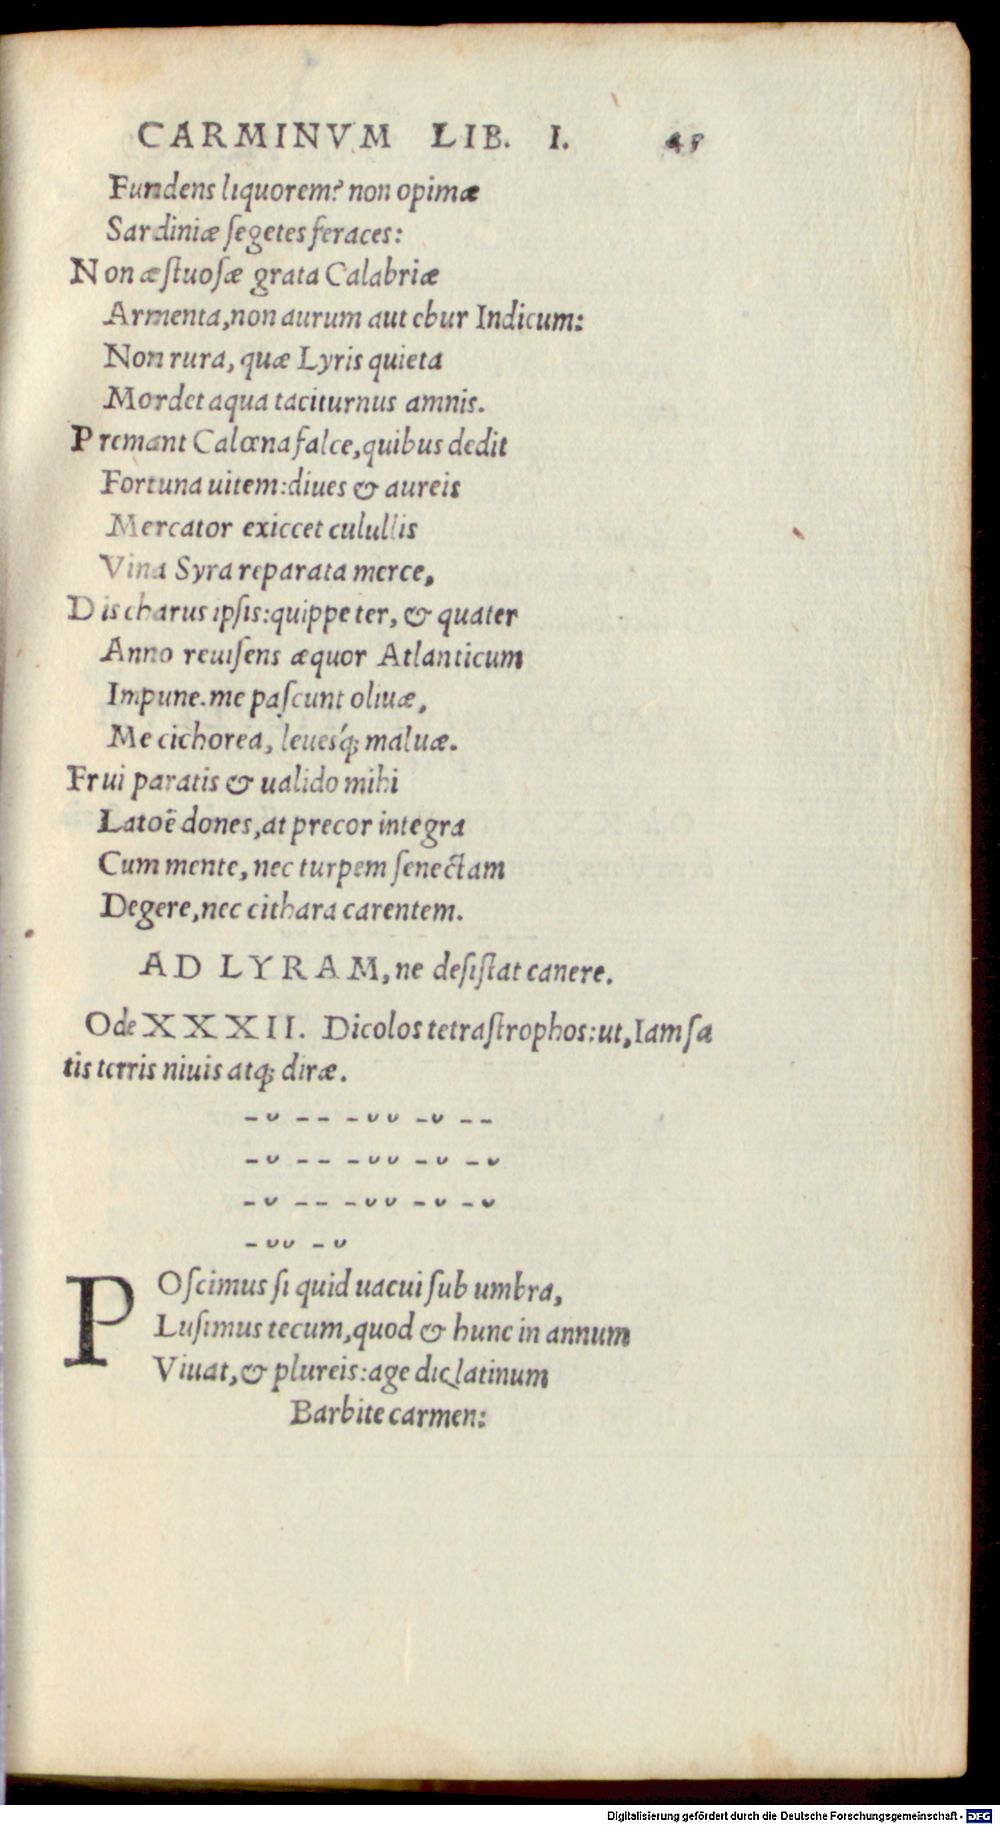 CARMINVM LIB. I. 45
Fundens liquorem? non opimæ
Sardiniæ ſegetes feraces:
Non æſtuoſæ grata Calabriæ
Armenta, non aurum aut ebur Indicum:
Non rura, quæ Lyris quieta
Mordet aqua taciturnus amnis.
Premant Calœna falce, quibus dedit
Fortuna uitem: diues & aureis
Mercator exiccet culullis
Vina Syra reparata merce,
Dis charus ipſis: quippe ter, & quater
Anno reuiſens æquor Atlanticum
Impune. me paſcunt oliuæ,
Me cichorea, leueſq́; maluæ.
Frui paratis & ualido mihi
Latoë dones, at precor integra
Cum mente, nec turpem ſenectam
Degere, nec cithara carentem.
AD LYRAM, ne deſiſtat canere.
Ode XXXII. Dicolos tetraſtrophos: ut, Iam ſa
tis terris niuis atq; diræ.
– ᴗ – – – ᴗ ᴗ – ᴗ – –
– ᴗ – – – ᴗ ᴗ – ᴗ – ᴗ
– ᴗ – – – ᴗ ᴗ – ᴗ – ᴗ
– ᴗ ᴗ – ᴗ
POſcimus ſi quid uacui ſub umbra,
Luſimus tecum, quod & hunc in annum
Viuat, & plureis: age dic latinum
Barbite carmen:
Digitalisierung gefördert durch die Deutsche Forschungsgemeinschaft - DFG